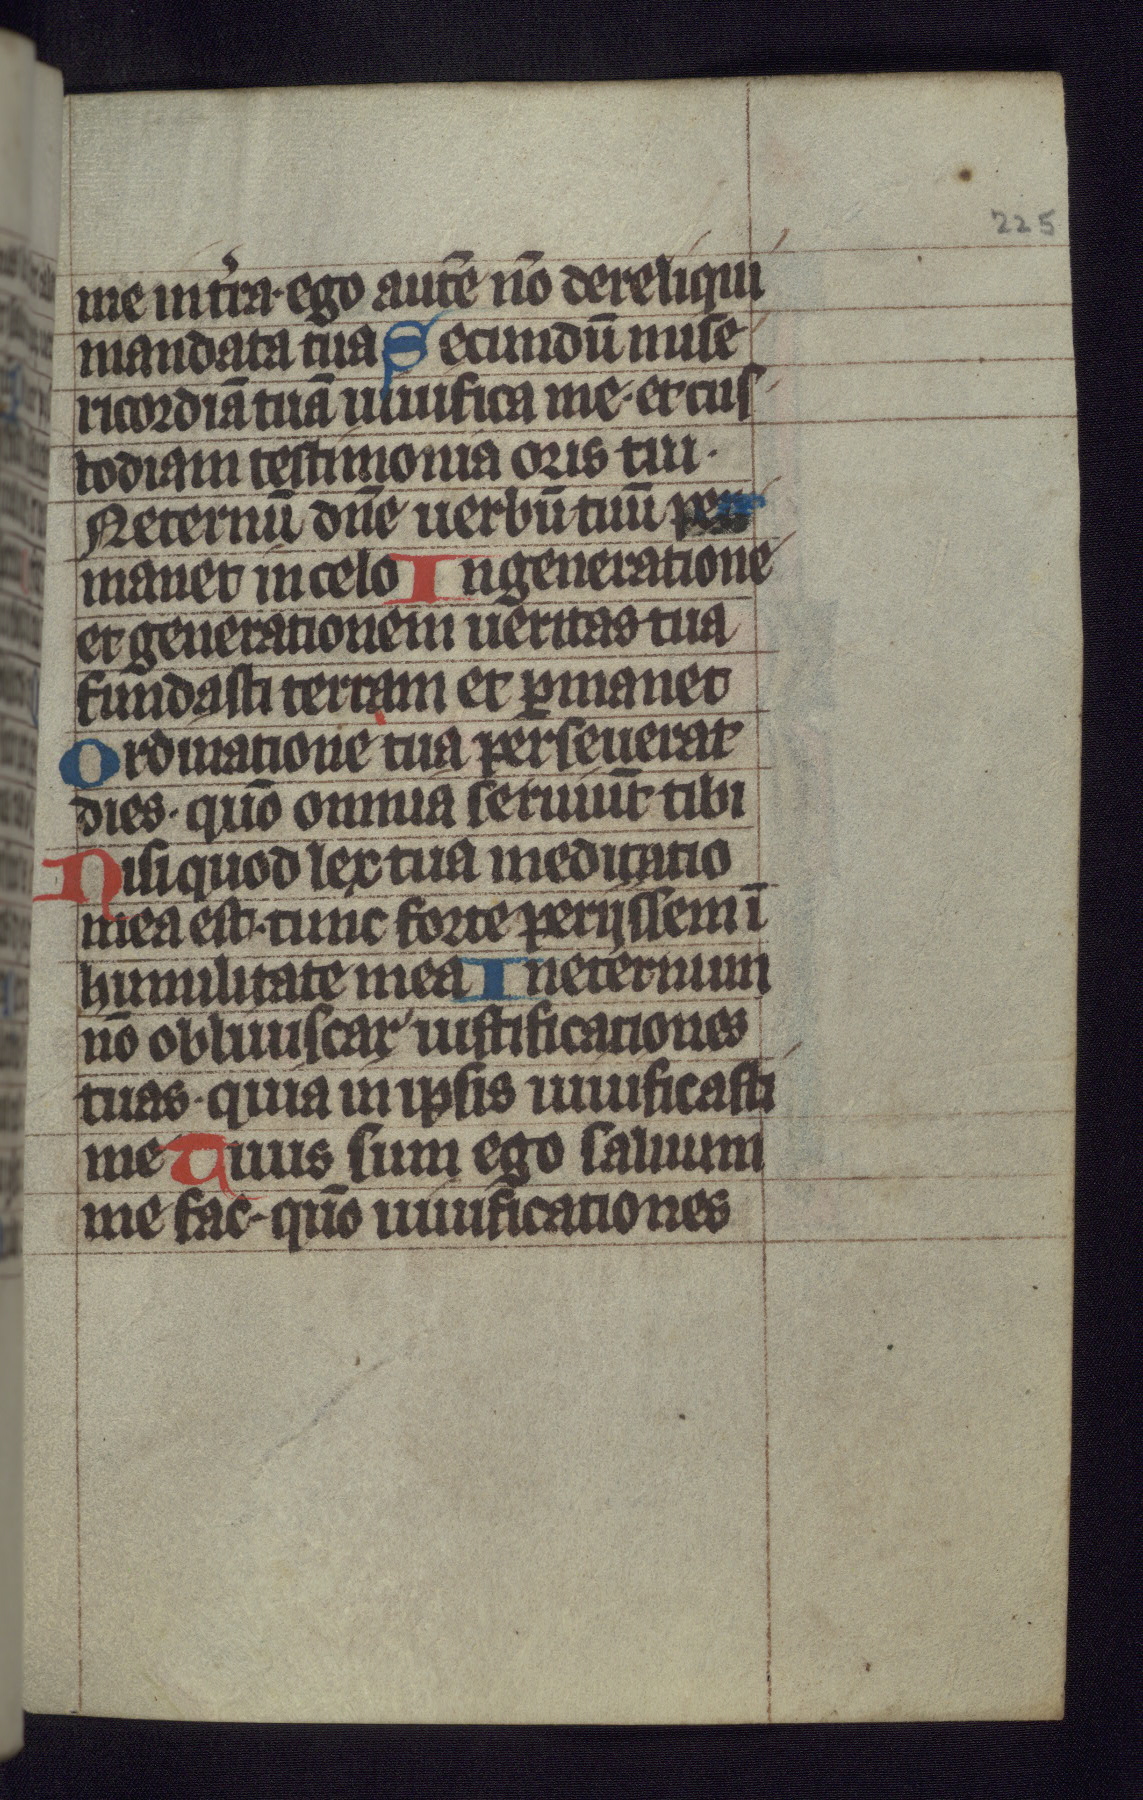 225
me in t̾ra· ego autē nō dereliqui
mandata tua Secundū mise
ricordiā tuā uiuifica me· et cus
todiam testimonia oris tui·
Neternū dn̄e uerbū tuū per
manet in celo In generatione
et generationem ueritas tua
fundasti terram et ꝑmanet
Ordinatione tua perseuerat
dies· quō omnia seruiūt tibi
Nisi quod lex tua meditatio
mea est· tunc forte perijssem ī
humilitate mea In eternum
nō obliuiscar iustificationes
tuas· quia in ipsis uiuificasti
me Tuus sum ego saluum
me fac· qūo uiuificationes